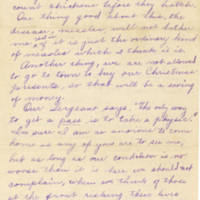 count chickens before they hatch.
One thing good about this, the
disease, measles will not bother
me as it is just the ordinary kind
of measles which I think it is.
Another thing, we are not allowed
to go to town to buy our Christmas
presents, so that will be a saving
of money.
Our Sergeant says "the only way
to get a pass, is to take a physic."
I'm sure I am as anxious to come
home as any of you are to see me,
but as long as our condition is no
worse than it is here we should not
complain, when we think of those
at the front risking their lives